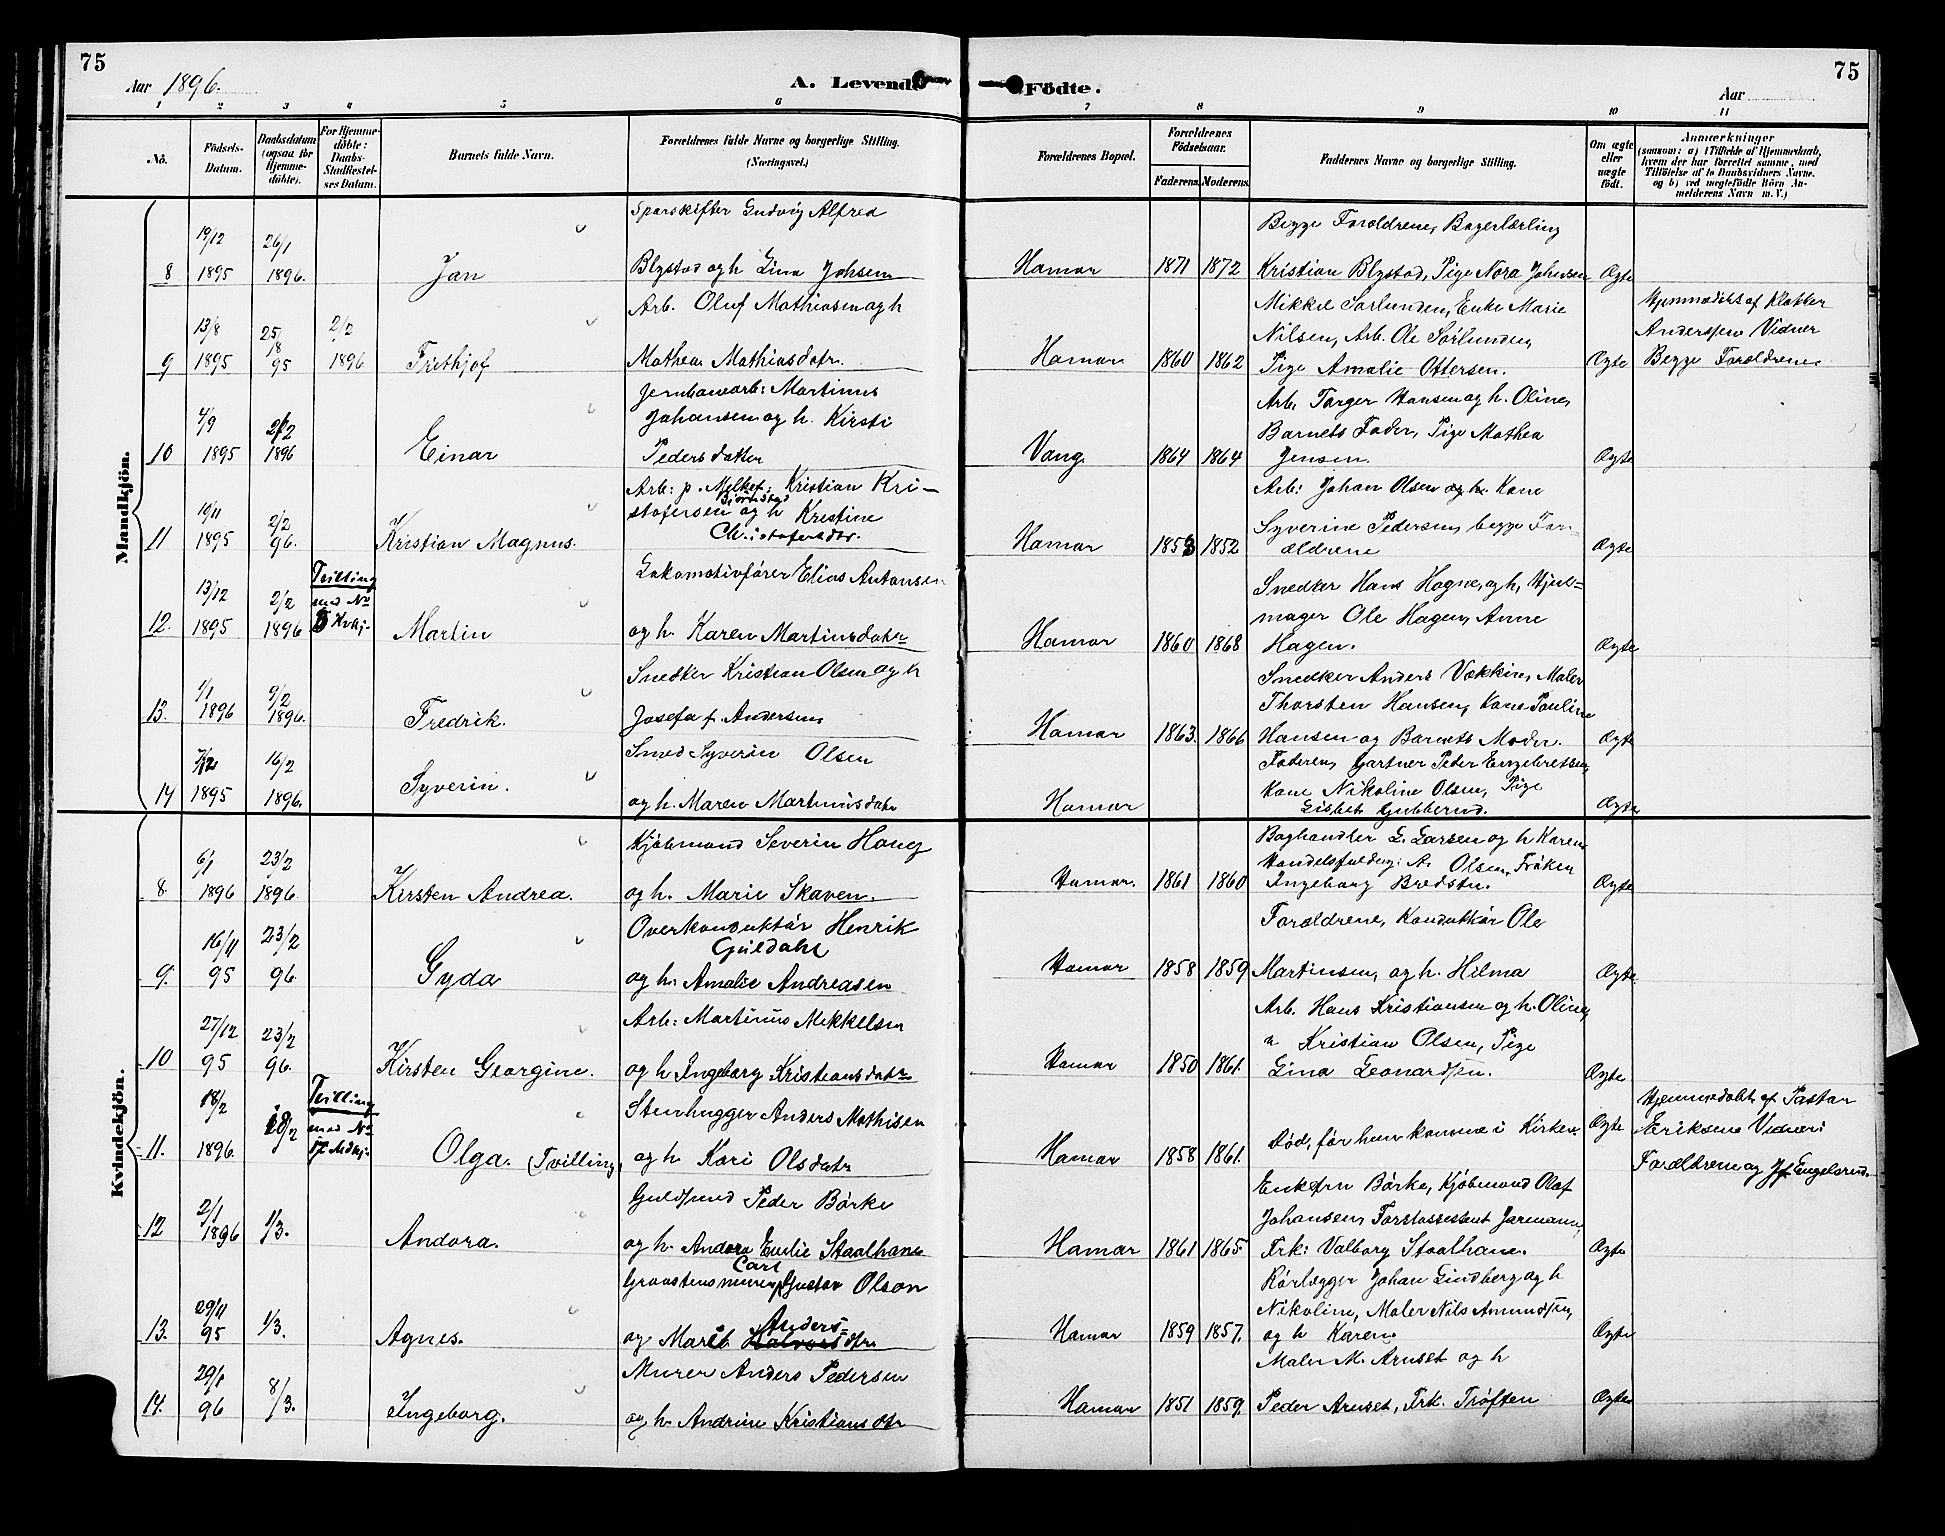 75
Aar 1896.
A. Levende
Födte.
75
Aar
1 2 3 4 5 6 7 8 9 10 11
No.
Födsels-
Datum.
Daabsdatum
(ogsaa for
Hjemme-
döbte).
For Hjemme-
döbte:
Daabs-
Stadfæstel-
ses Datum.
Barnets fulde Navn.
Forældrenes fulde Navne og borgerlige Stilling.
(Næringsvei.)
Forældrenes Bopæl.
Forældrenes
Födselsaar.
Faderens. Moderens.
Faddernes Navne og borgerlige Stilling.
Om ægte
eller
uægte
födt.
Anmærkninger
(saasom: a) i Tilfælde af Hjemmedaab,
hvem der har forrettet samme, med
Tilföielse af to Daabsvidners Navne,
og b) ved uægtefödte Börn An-
melderens Navn m. V.)
Mandkjön.
Ludvig Alfred
Begge Forældrene, Bagerlærling
19/12 26/1
8 1895 1896. Jan Blystad og h Lina Johsen Hamar 1871 1872 Kristian Blystad, Pige Nora Johnsen Ægte
Arb. Oluf Mathiasen og h
Mikkel Sørlunden, Enke Marie
Hjemmedøbt af Klokker
13/8 25/8 2/2
Nilsen, Arb. Ole Sørlunden
Anderssen Vidner
9 1895 95 1896 Frithjof Mathea Mathiasdatr. Hamar 1860 1862 Pige Amalie Ottersen. Ægte Begge Forældrene
Jernbanearb: Martinus
Arb. Torger Hansen og h. Oline,
4/9 2/2 Johansen og h. Kirsti
Barnets Fader, Pige Mathea
10 1895 1896 Einar Pedersdatter Vang. 1864 1864 Jensen. Ægte
Arb: p. Melkef. Kristian Kri-
Arb: Johan Olsen Kone
Bjørnstad
19/11 2/2 stofersen og h Kristine
Syverine Pedersen, begge For-
11 1895 96. Kristian Magnus. Christofersdtr. Hamar 1853 1852 ældrene Ægte
Tvilling
Lokomotivfører Elias Antonsen
Snedker Hans Hagne, og h, Hjul-
13/12 2/2 med No
mager Ole Hagen, Anne
12. 1895 1896 5 Kvkj. Martin og h. Karen Martinsdatr Hamar 1860 1868 Hagen. Ægte
Snedker Kristian Olsen og h
Snedker Anders Vækkin, Maler
1/1 9/2
Thorsten Hansen, Kone Pauline
13. 1896 1896. Fredrik. Josefa f. Andersen Hamar 1863. 1866 Hansen og Barnets Moder. Ægte
Smed Syverin Olsen
Faderen, Gartner Peder Engebretsen,
16/2
Kone Nikoline Olsen, Pige
14 1895 1896. Syverin. og h. Maren Martinusdatr Hamar Lisbet Gubberud. Ægte
Kvindekjön.
Kjøbmand Severin Haug
Boghandler L. Larsen og h Karen
6/1 23/2
Olsen, Frøken
8. 1896 1896. Kirsten Andrea. og h. Marie Skaven. Hamar. 1861 1860 Ingeborg Ægte
Overkonduktør Henrik
Forældrene, Konduktør Ole
16/11 23/2 Gjeldahl
9. 95 96. Gyda og h. Amalie Andreasen Hamar 1858 1859 Martinsen, og h. Hilma Ægte
Arb: Martinus Mekkelsen
Arb. Hans Kristiansen og h. Oline,
27/12 23/2
" Kristian Olsen, Pige
10 95 96. Kirsten Georgine. og h Ingeborg Kristiansdatr Hamar 1850 1861. Lina Leonardsen. Ægte
Tvilling
Stenhugger Anders Mathisen
Hjemmedøbt af Pastor
18/2 18/2 med No
Død, før hun komme i Kirken. Ægte Eriksen Vidner:
11. 1896. 17 Mdkj. Olga. (Tvilling) og h Kari Olsdatr Hamar 1858 1861. Forældrene og Engelsrud.
Guldsmed Peder Børke
Enkefru Børke, Kjøbmand Olaf
2/1
Johansen, Forstassistent Jarmann,
12 1896 1/3. Andora. og h. Andora Emelie Staalhane Hamar 1861 1865. Frk: Valborg Staalhane. Ægte
Carl
Graastensmurer Gustav Olson
Rørlægger Johan Lindberg og h
29/11 Anders-
Nikoline, Maler Nils Amundsen,
13. 95 1/3. Agnes. og Marit Halvorsdtr Hamar 1859 1857. og h Karen. Ægte
Murer Anders Pedersen
Maler M. Aruset og h
29/1
14. 96 8/3. Ingeborg. og h. Andrine Kristiansdtr Hamar 1851 1859. Peder Aruset, Frk. Trøften Ægte